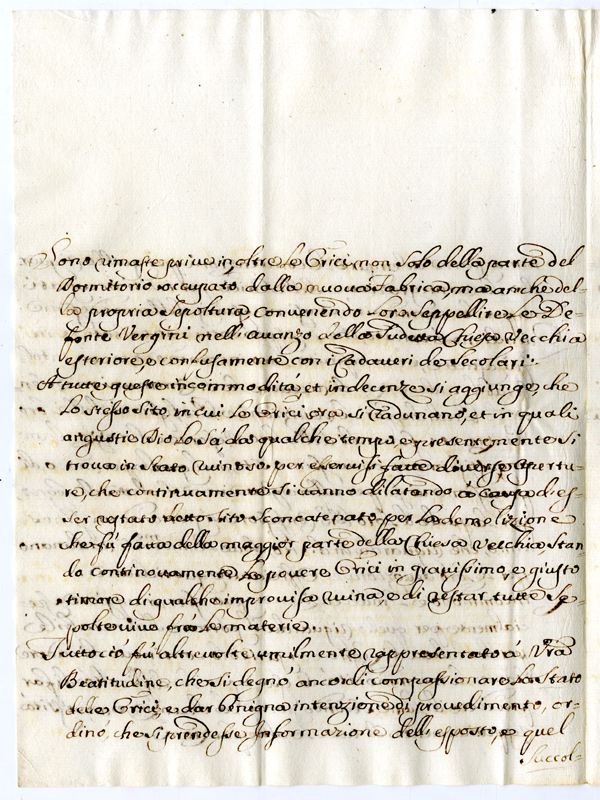 Sono rimaste prive in oltre le Orici non solo della parte del
Dormitorio occupato dalla nuova fabrica, ma anche del-
la propria sepoltura, convenendo loro seppellire le De-
fonte Vergini nell'avanzo della sudetta Chiesa Vecchia
esteriore, e confusamente con i Cadaveri de Secolari.
A tutte queste incommodità, et indecenze si aggiunge, che
lo stesso sito, in cui le Orici ora si radunano, et in quali
angustie Dio lo sà, da qualche tempo, e presentemente si
trova in stato ruinoso, per esservisi fatte diverse apertu-
re, che continuamente si vanno dilatando à causa d'es-
ser restato detto sito sconcatenato per la demolizione
che fù fatta della maggior parte della Chiesa Vecchia stan
do continovamente le povere Orici in gravissimo, e giusto
timore di qualche improvisa ruina, e di restar tutte se-
polte vive frà le materie.
Tuttociò fù altre volte umilmente rappresentato à Vrã
Beatitudine, che si degnò ancor di compassionare lo stato
delle Orici, e dar benigna intenzione di provedimento, or-
dinò, che si prendesse Informazione dell'esposto, e quel
Succol-